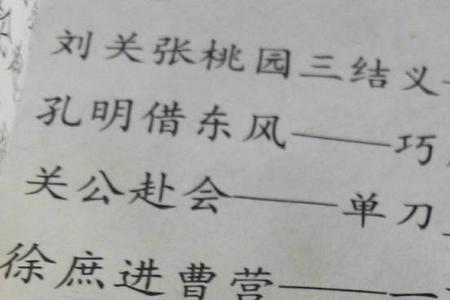 刘关张桃园三结义—
孔明借东风——巧
关公赴会——单刀
徐庶进曹营——一